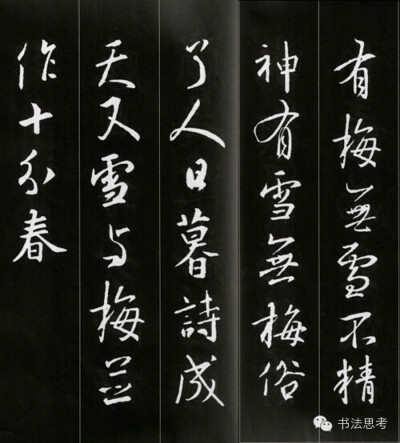 有梅無雪不精
神有雪無梅俗
了人日暮詩成
天又雪与梅並
作十分春
书法思考